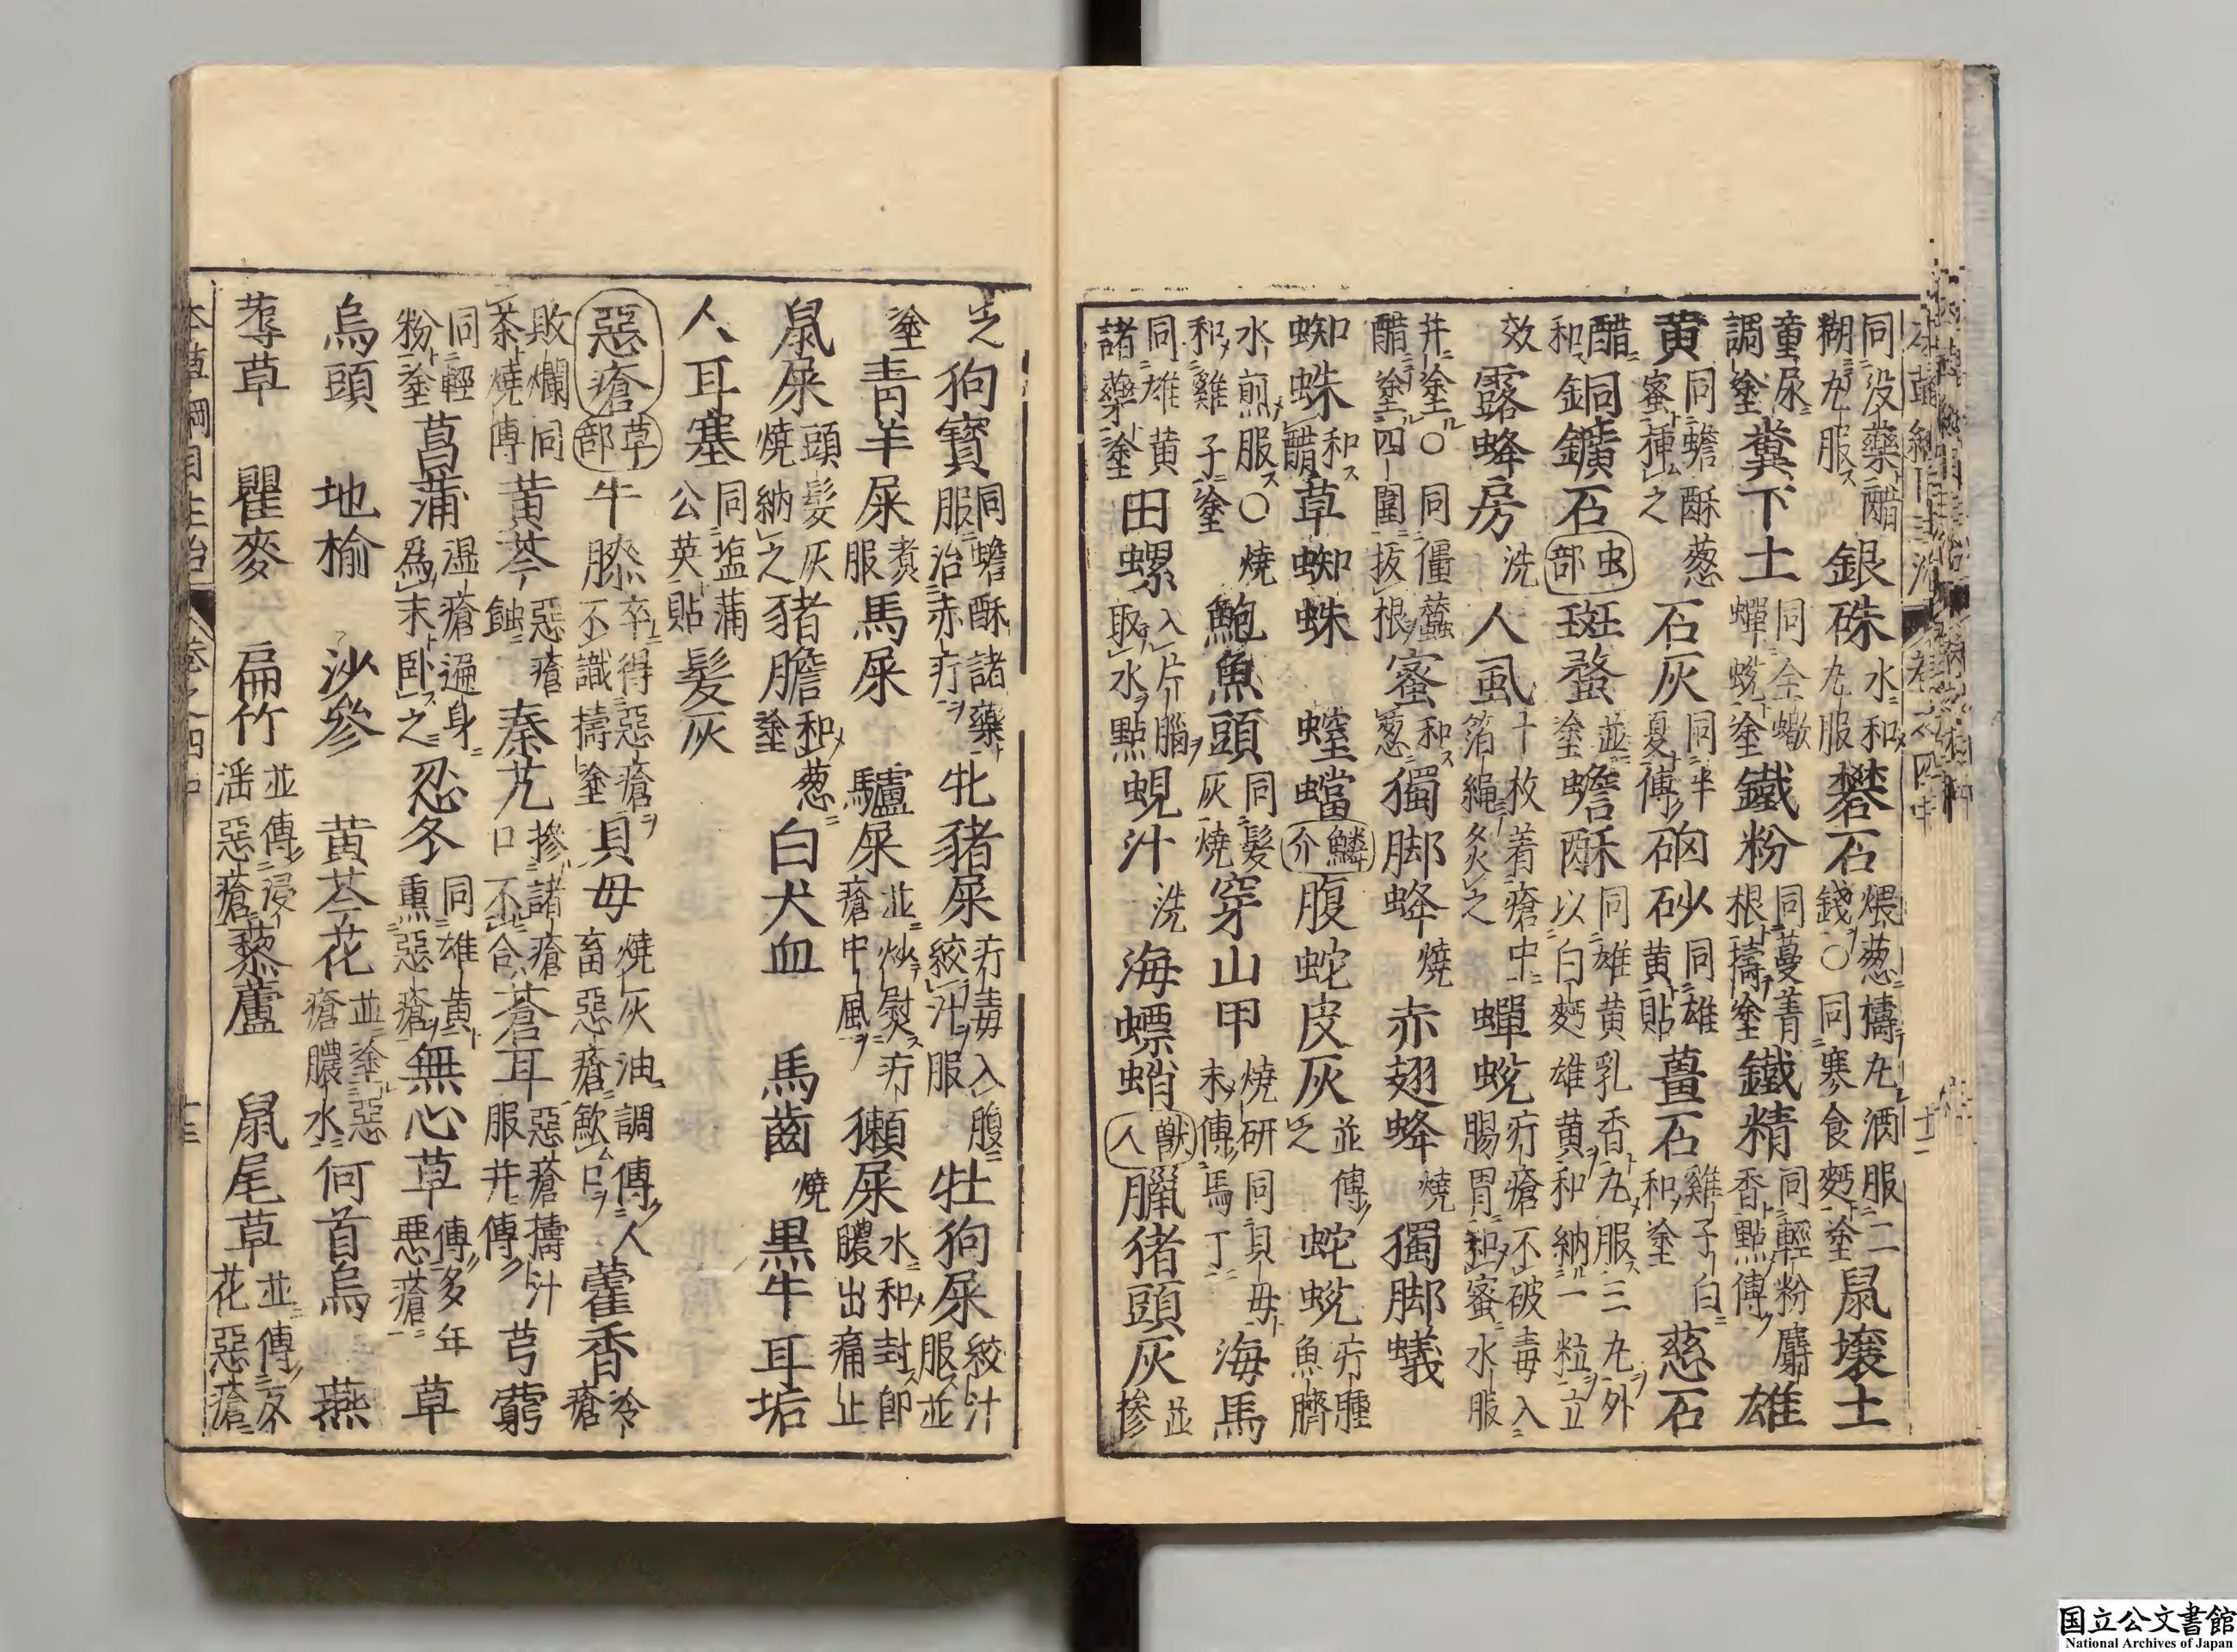 同没藥醋糊丸服 銀硃 水和丸服 礬石 煨葱擣丸酒服二錢○同寒食麪塗 鼠壤土
童尿調塗 糞下土 同全蠍蟬蛻塗 鐵粉 同蔓菁根擣塗 鐵精 同輕粉麝香點傅 雄
黄 同蟾酥葱蜜揷之 石灰 同半夏傅 硇砂 同雄黄貼 薑石 雞子白和塗 慈石
醋和 銅鑛石 虫部 斑蝥 並塗 蟾酥 同雄黄乳香丸服三丸外以白麪雄黄和納一粒立
效 露蜂房 洗 人虱 十枚着瘡中箔繩灸之 蟬蛻 疔瘡不破毒入腸胃和蜜水服
并塗○同僵蠶醋塗四圍抜根 蜜 和葱 獨脚蜂 燒 赤翅蜂 燒 獨脚蟻
蜘蛛 和醋 草蜘蛛 螲蟷 鱗介 腹蛇皮灰 並傅之 蛇蛻 疔腫魚臍
水煎服○燒和雞子塗 鮑魚頭 同髮灰燒 穿山甲 燒研同貝母末傅馬丁 海馬
同雄黄諸藥塗 田螺 入片腦取水點 蜆汁 洗 海螵蛸 獸人 臘猪頭灰 並摻
之 狗寳 同蟾酥諸藥服治赤疔 牝猪屎 疔毒入腹絞汁服 牡狗屎 絞汁服並
塗 青羊屎 煑服 馬屎 驢屎 並炒熨疔瘡中風 獺屎 水和封即膿出痛止
鼠屎 頭髮灰燒納之 猪膽 和葱塗 白犬血 馬齒 燒 黒牛耳垢
人耳塞 同塩蒲公英貼 髮灰
惡瘡 草部 牛膝 卒得惡瘡不識擣塗 貝母 燒灰油調傅人畜惡瘡歛口 藿香 冷瘡
敗爛同茶燒傅 黄芩 惡瘡蝕 秦艽 摻諸瘡口不合 蒼耳 惡瘡擣汁服并傅 芎藭
同輕粉塗 菖蒲 濕瘡遍身為末臥之 忍冬 同雄黄熏惡瘡 無心草 傅多年惡瘡 草
烏頭 地榆 沙參 黄芩花 並塗惡瘡膿水 何首烏 燕
蓐草 瞿麥 扁竹 並傅浸淫惡瘡 藜蘆 鼠尾草 並傅反花惡瘡
本草綱目主治 卷之四中 十三
国立公文書館
National Archives of Japan